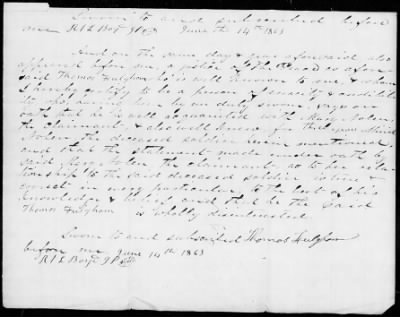 Sworn to and subscribed before
me June the 14th 1863
And on the same day and year aforesaid also
appeared before me a Justice of the Peace as afore-
said Thomas Fulgham who is well known to me & whom
I hereby certify to be a person of veracity & credibili-
ty who, having been by me duly sworn, says on
oath that he is well acquainted with Mary Nolen,
the claimant, & also well knew
Nolen the deceased soldier herein mentioned,
and that the statement made under oath by
said Mary Nolen the claimant as to her rela-
tionship to the said deceased soldier is true &
correct in every particular, to the best of his
knowledge & belief and that he the said
Thomas Fulgham is wholly disinterested.
Sworn to and subscribed Thomas Fulgham
before me June 14th 1863